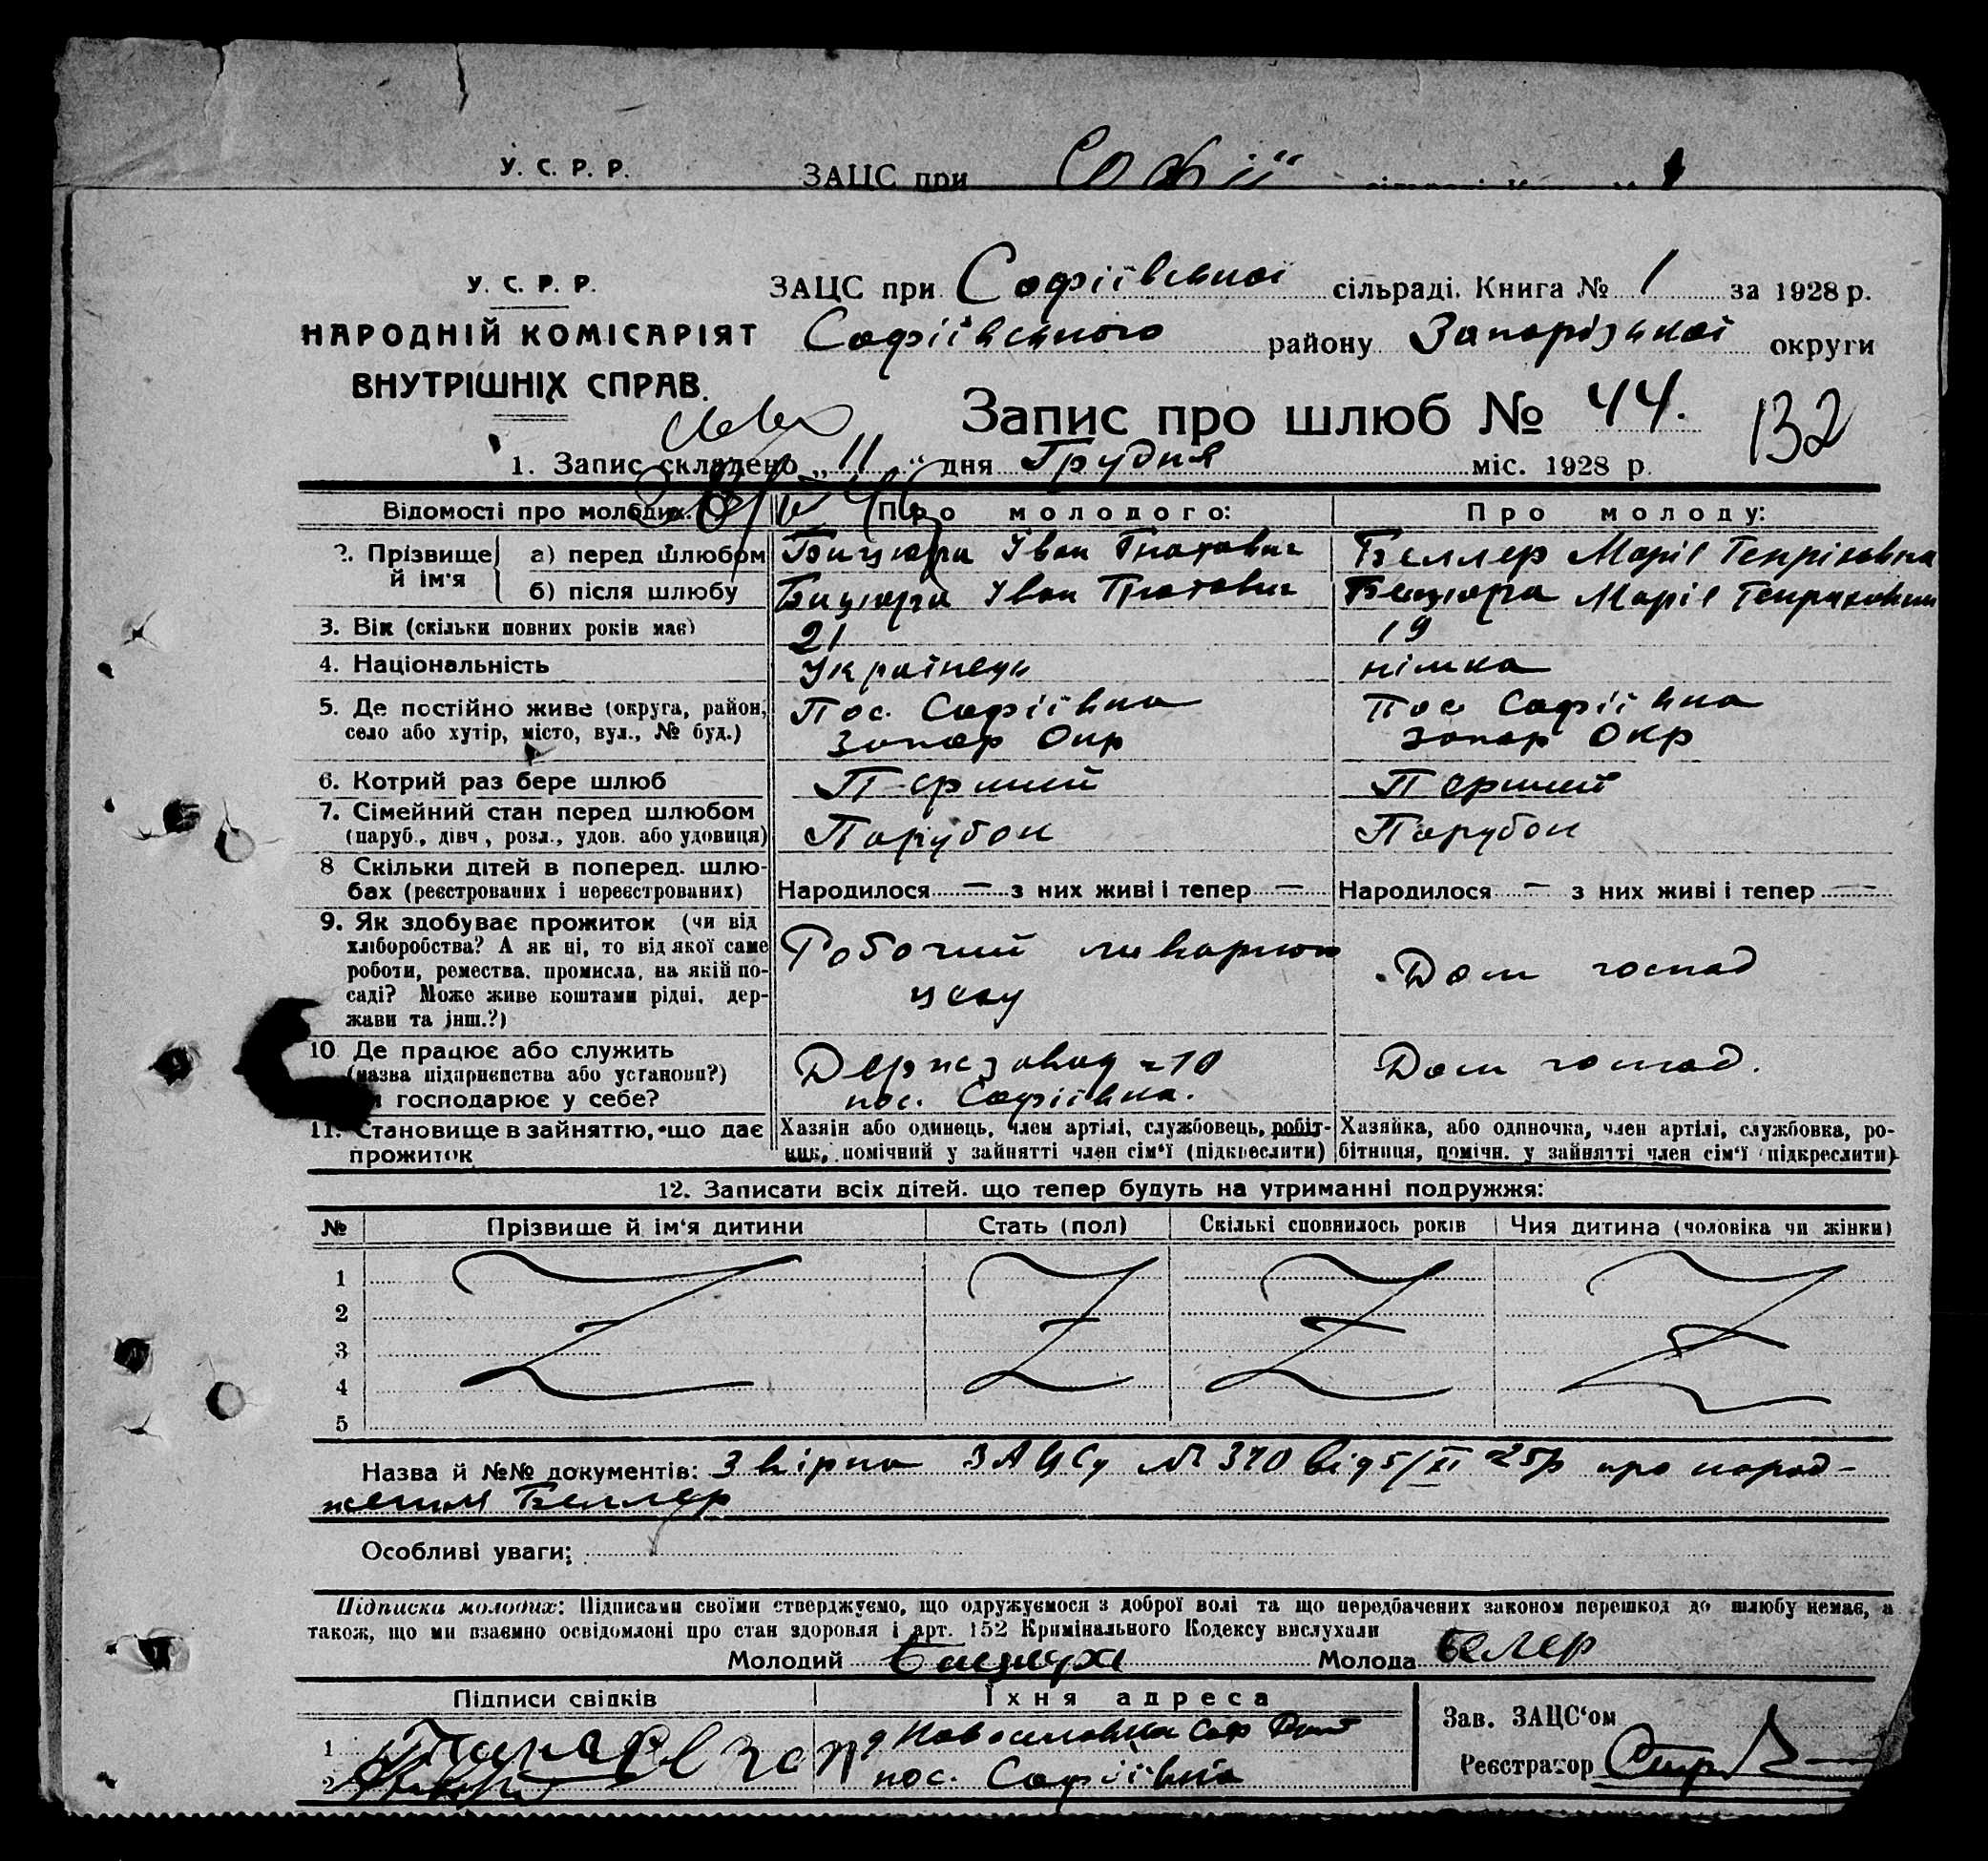 У. С. Р. Р. ЗАЦС при Софії
У. С. Р. Р.
НАРОДНІЙ КОМІСАРІЯТ
ВНУТРІШНІХ СПРАВ.
ЗАЦС при Софіївської сільраді. Книга № 1 за 1928 р.
Софіївського району Запорізької округи
Запис про шлюб № 44. 132
1. Запис складено „11“ дня Грудня міс. 1928 р.
Відомості про молодих. Про молодого: Про молоду:
2. Прізвище й ім'я
а) перед шлюбом Бицюра Іван Гнатович Беллер Маріє Генріховна
б) після шлюбу Бицюра Іван Гнатович Бецюра Маріє Генриховни
3. Вік (скільки повних років має) 21 19
4. Національність Українець німка
5. Де постійно живе (округа, район, Пос. Софіївка Пос Софіївка
село або хутір, місто, вул., № буд.) Запор Окр Запор Окр
6. Котрий раз бере шлюб Перший Перший
7. Сімейний стан перед шлюбом
(паруб., дівч., розл., удов. або удовиця) Парубок Парубок
8 Скільки дітей в поперед. шлю-
бах (реєстрованих і нереєстрованих) Народилося — з них живі і тепер — Народилося — з них живі і тепер —
9. Як здобуває прожиток (чи від
хліборобства? А як ні, то від якої саме Робочий ливарного Дом господ
роботи, ремества, промисла, на якій по- цеху
саді? Може живе коштами рідні, дер-
жави та інш.?)
10 Де працює або служить Держзавод 10 Дом господ.
(назва підприємства або установи?) пос. Софіївка.
господарює у себе?
11. Становище в зайняттю, що дає Хазяїн або одинець, член артілі, службовець, робіт- Хазяйка, або одиночка, член артілі, службовка, ро-
прожиток ник, помічний у зайнятті член сім'ї (підкреслити) бітниця, помічн. у зайнятті член сім'ї (підкреслити)
12. Записати всіх дітей. що тепер будуть на утриманні подружжя:
№ Прізвище й ім'я дитини Стать (пол) Скількі сповнилось років Чия дитина (чоловіка чи жінки)
1
2
3
4
5
Назва й №№ документів: Звірка ЗАЦСу № 370 від 5/XI 25р про народ-
ження Беллер
Особливі уваги:
Підписка молодих: Підписами своїми стверджуємо, що одружуємося з доброї волі та що передбачених законом перешкод до шлюбу немає, а
також, що ми взаємно освідомлені про стан здоровля і арт. 152 Кримінального Кодексу вислухали
Молодий Молода Белер
Підписи свідків Їхня адреса Зав. ЗАЦС'ом
1
2 пос. Софіївка
Реєстратор